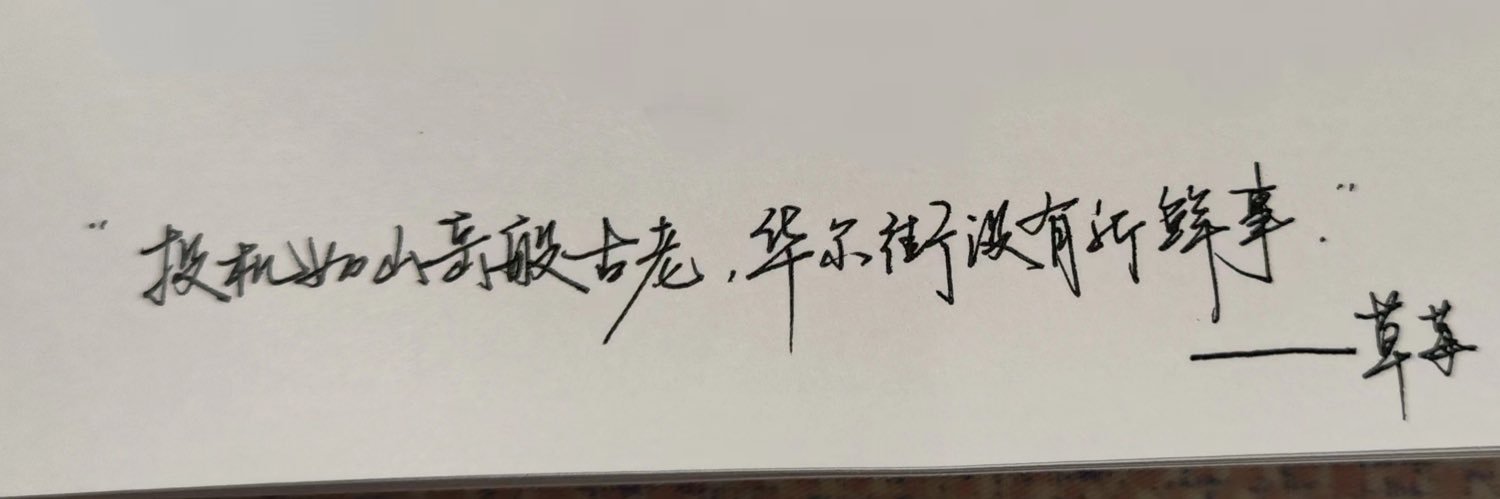 “投机如山岳般古老,华尔街没有新鲜事.”
——草莓